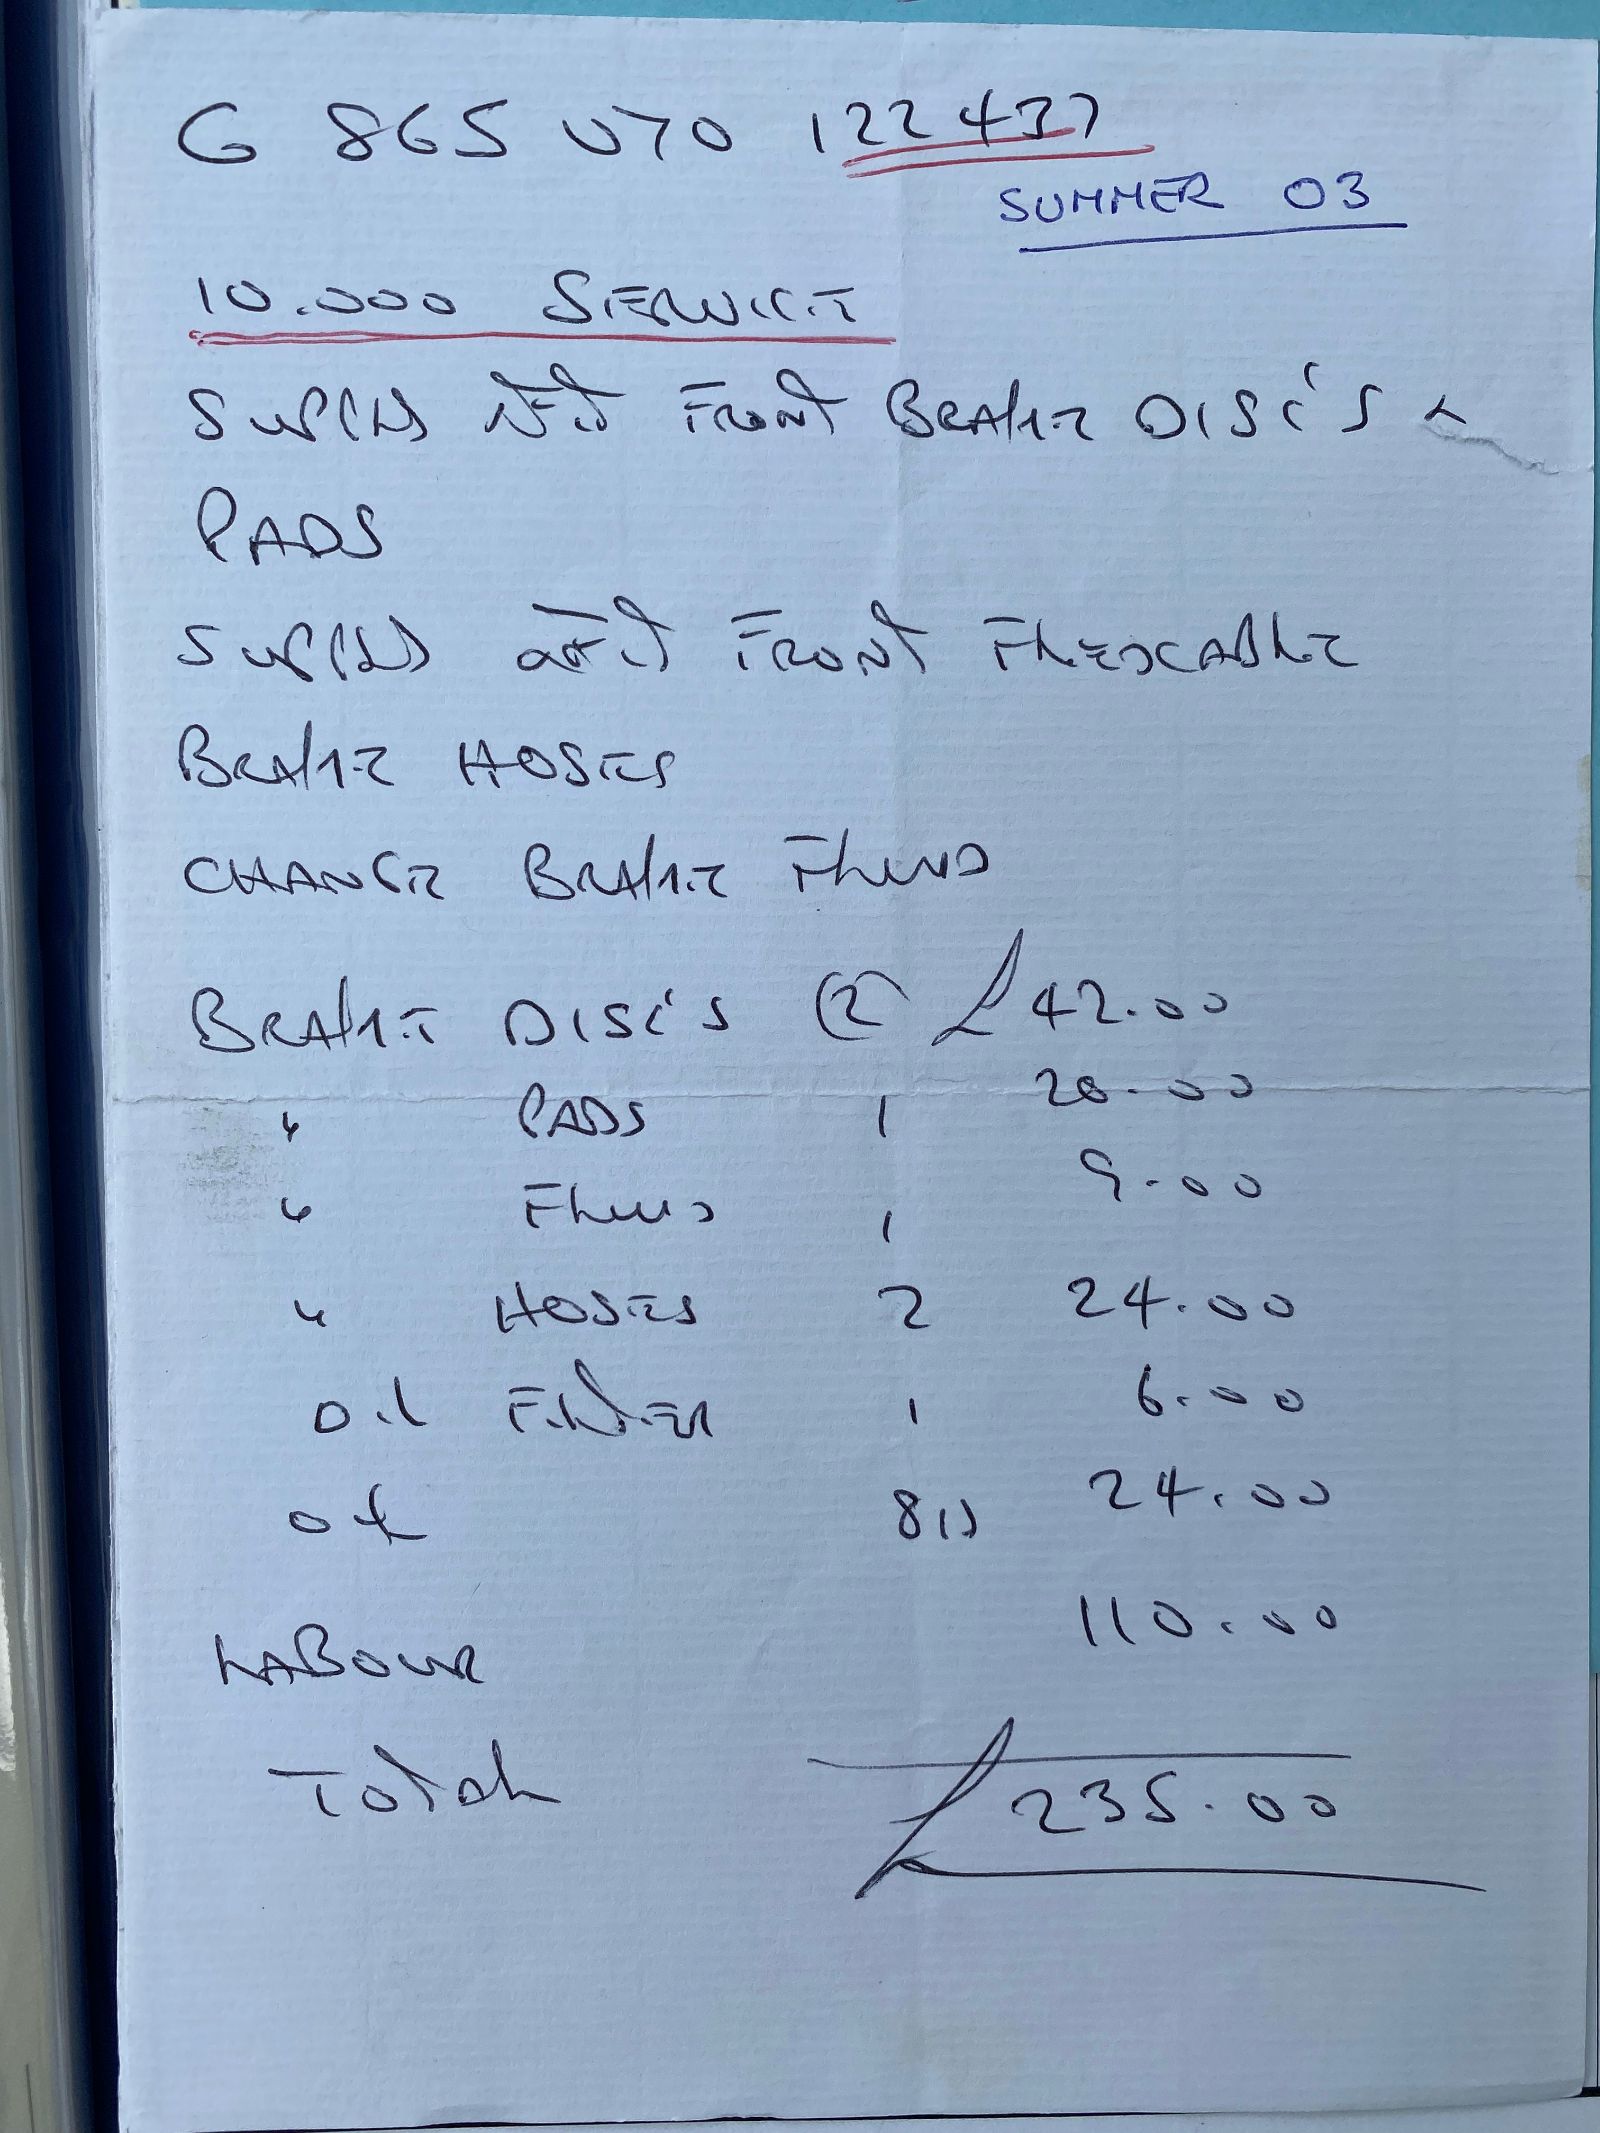 G 865 UYO 122437
SUMMER 03
10.000 SERVICE
SUPPLY & FIT FRONT BRAKE DISC'S &
PADS
SUPPLY & FIT FRONT FLEXCABLE
BRAKE HOSES
CHANGE BRAKE FLUID
BRAKE DISC'S (2) £42.00
" PADS 1 20.00
" FLUID 1 9.00
" HOSES 2 24.00
OIL FILTER 1 6.00
OIL 8 24.00
LABOUR 110.00
TOTAL £235.00